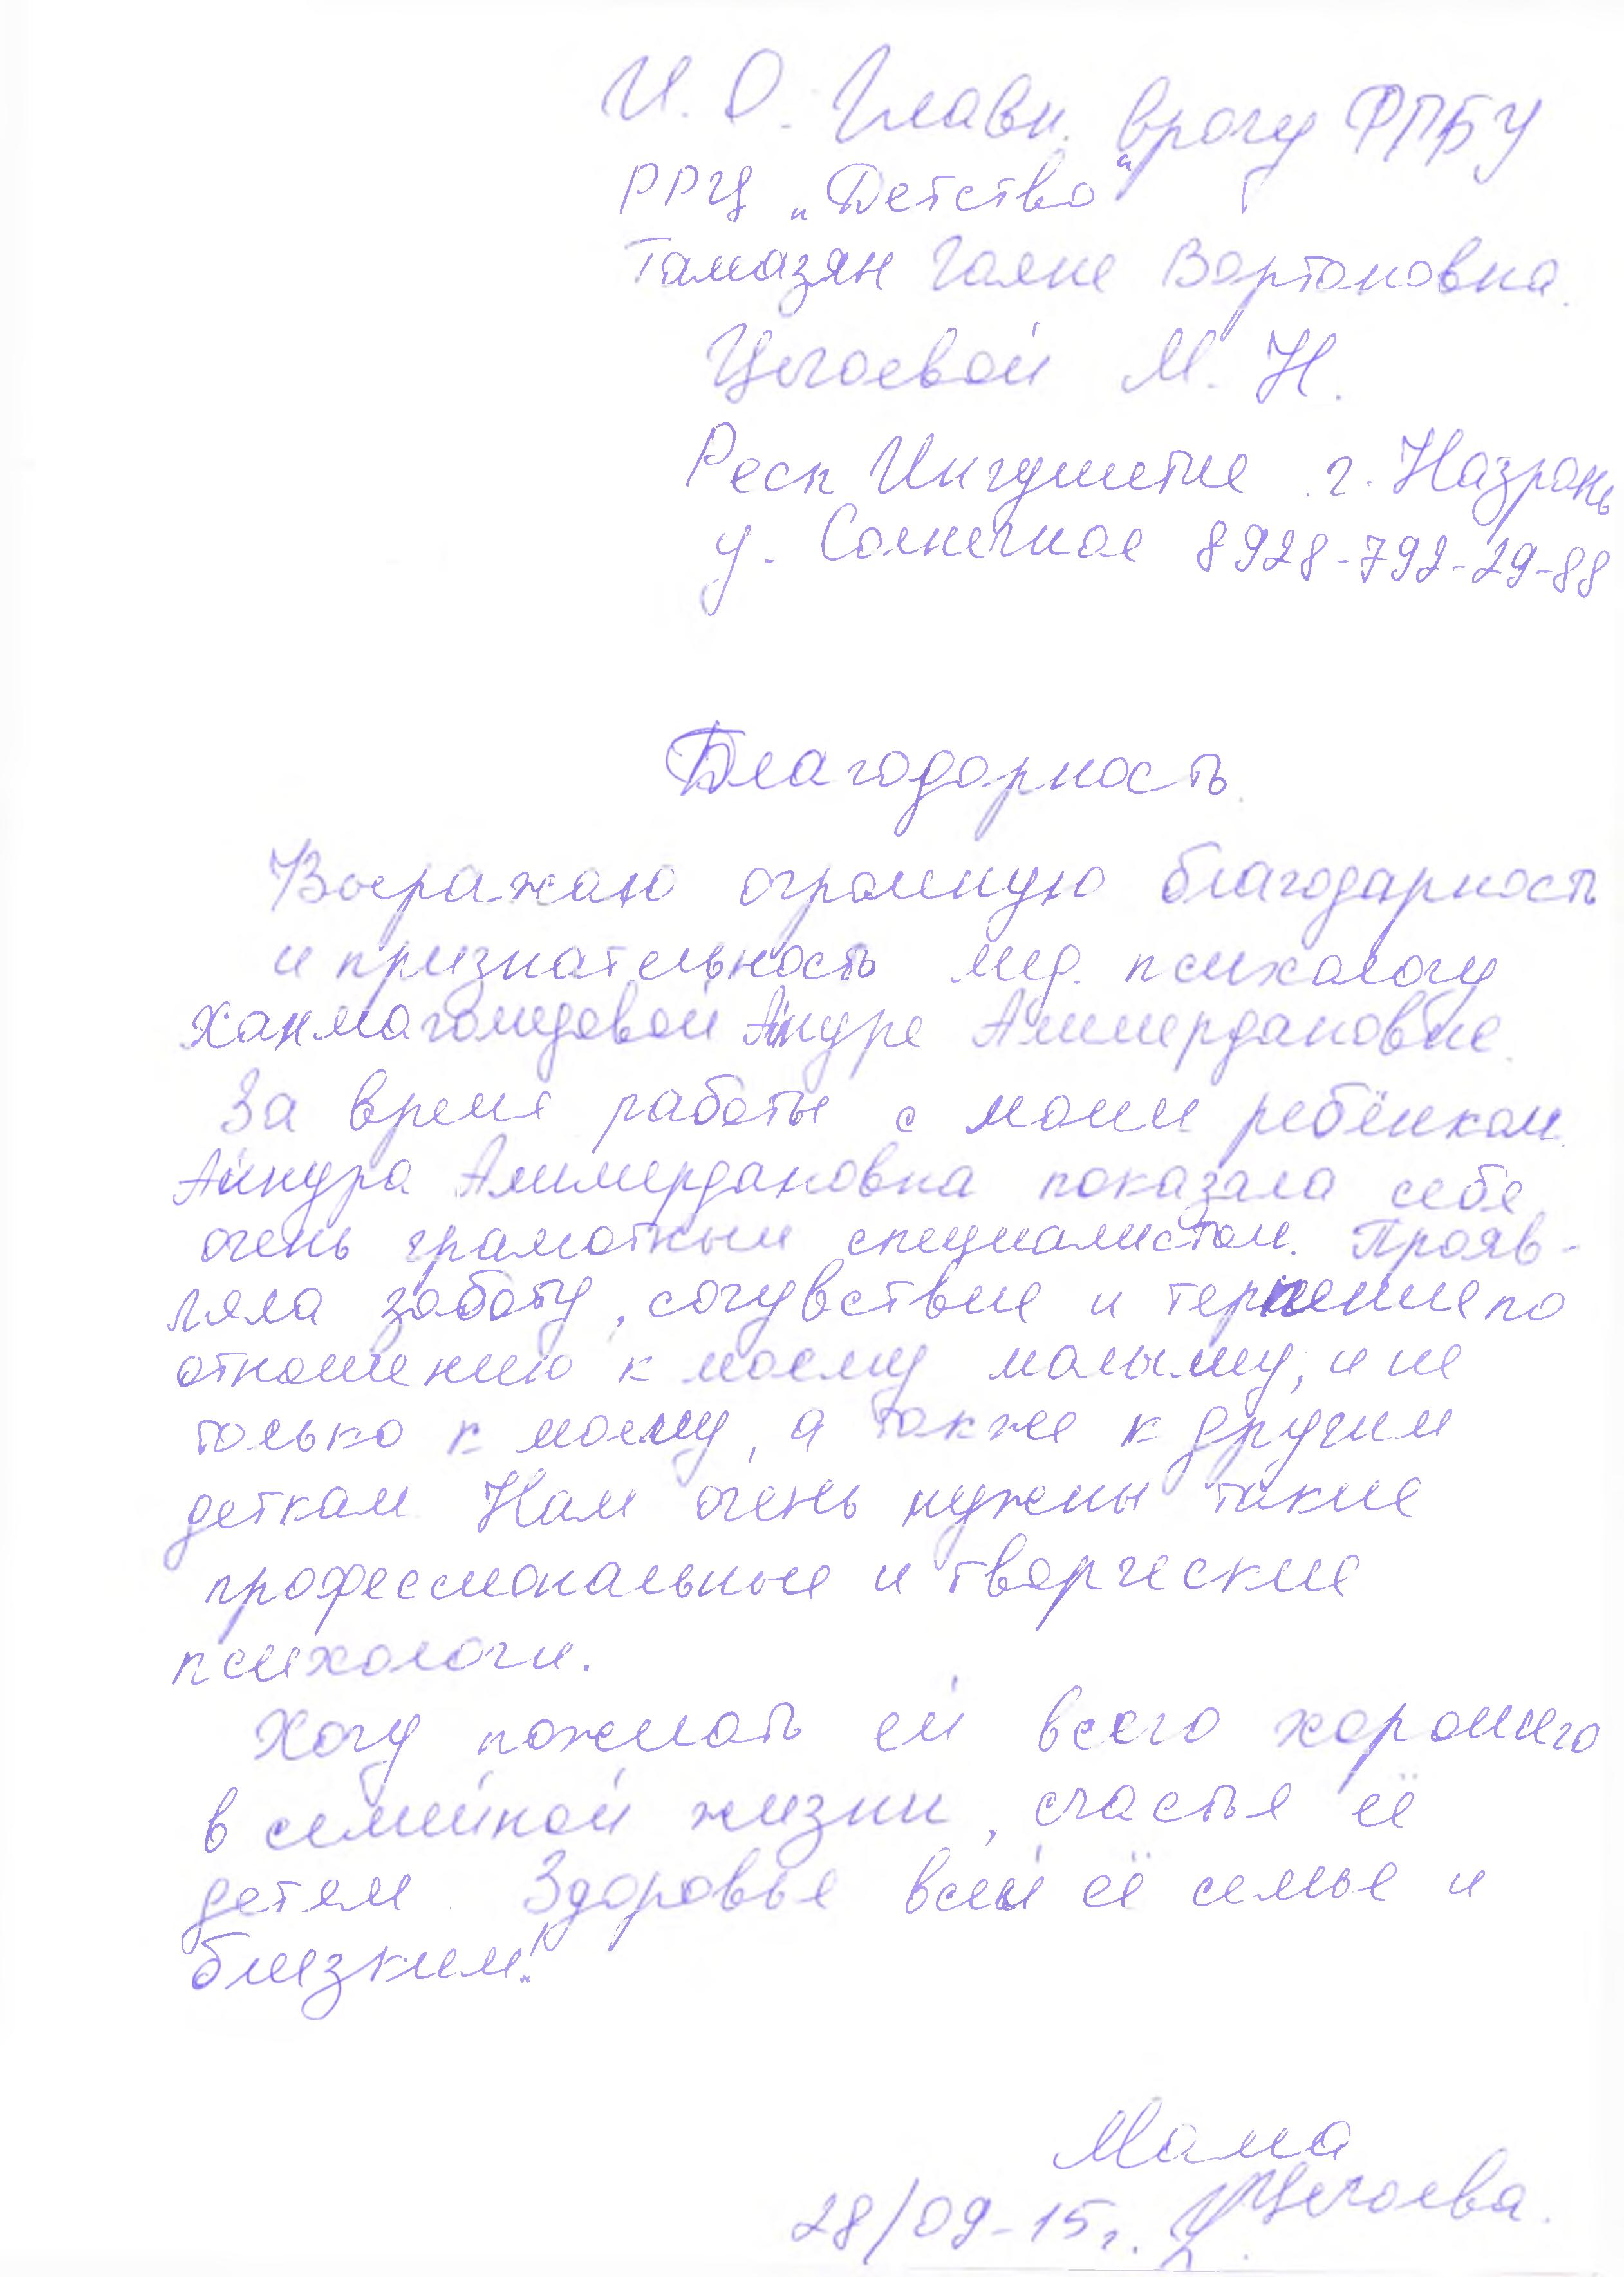 И.О. Главн. врачу ФГБУ
РРЦ „Детство“
Тамазян Гаяне Вартановна.
Цечоевой М. Н.
Респ Ингушетие г. Назрань
у. Солнечное 8928-792-29-88
Благодарность.
Выражаю огромную благодарность
и признательность мед. психологу
Ханмагомедовой Айнуре Алимердановне.
За время работы с моим ребёнком
Айнура Алимердановна показала себе
очень грамотным специалистом. Прояв-
ляла заботу, сочувствие и терпение по
отношению к моему малышу, и не
только к моему, а также к другим
деткам. Нам очень нужны такие
профессиональные и творческие
психологи.
Хочу пожелать ей всего хорошего
в семейной жизни, счастье её
детям. Здоровье всей её семье и
близким!
Мама
28/09-15г. Цечоева.